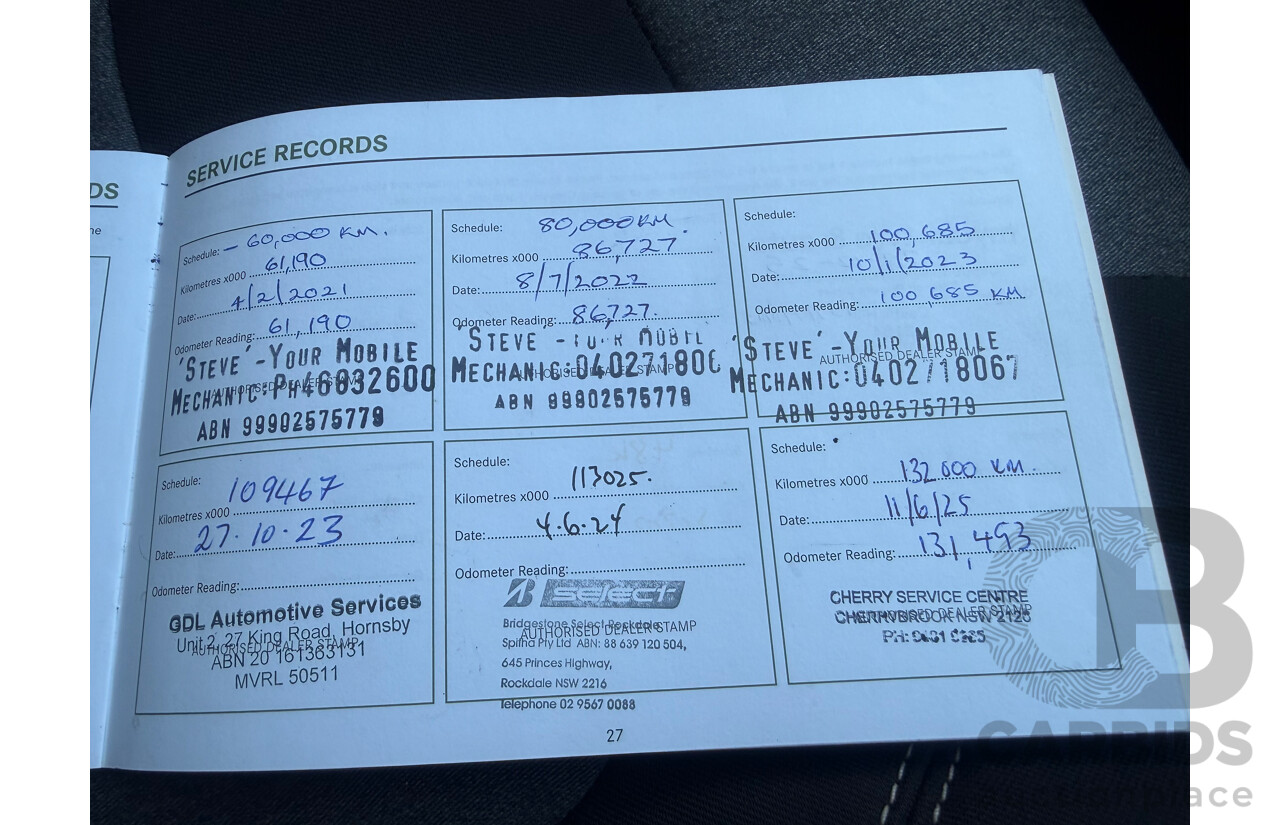 DS
SERVICE RECORDS
Schedule: - 60,000 KM.
Kilometres x000 61,190
Date: 4/2/2021
Odometer Reading: 61,190
AUTHORISED DEALER STAMP
'STEVE' - YOUR MOBILE
MECHANIC: PH 46832600
ABN 99902575779
Schedule: 80,000 KM.
Kilometres x000 86,727
Date: 8/7/2022
Odometer Reading: 86,727.
AUTHORISED DEALER STAMP
'STEVE' - YOUR MOBIL
MECHANIC: 040271806
ABN 99902575779
Schedule:
Kilometres x000 100,685
Date: 10/1/2023
Odometer Reading: 100 685 KM
AUTHORISED DEALER STAMP
'STEVE' - YOUR MOBILE
MECHANIC: 0402718067
ABN 99902575779
Schedule: 109467
Kilometres x000
Date: 27.10.23
Odometer Reading:
AUTHORISED DEALER STAMP
GDL Automotive Services
Unit 2, 27 King Road, Hornsby
ABN 20 161363131
MVRL 50511
Schedule:
Kilometres x000 113025.
Date: 4.6.24
Odometer Reading:
AUTHORISED DEALER STAMP
B SELECT
Bridgestone Select Rockdale
Pty Ltd ABN: 88 639 120 504,
645 Princes Highway,
Rockdale NSW 2216
Telephone 02 9567 0088
Schedule:
Kilometres x000 132 000 KM.
Date: 11/6/25
Odometer Reading: 131,493
AUTHORISED DEALER STAMP
CHERRY SERVICE CENTRE
CHERRYBROOK NSW 2126
PH:
27
CARBIDS
marketplace